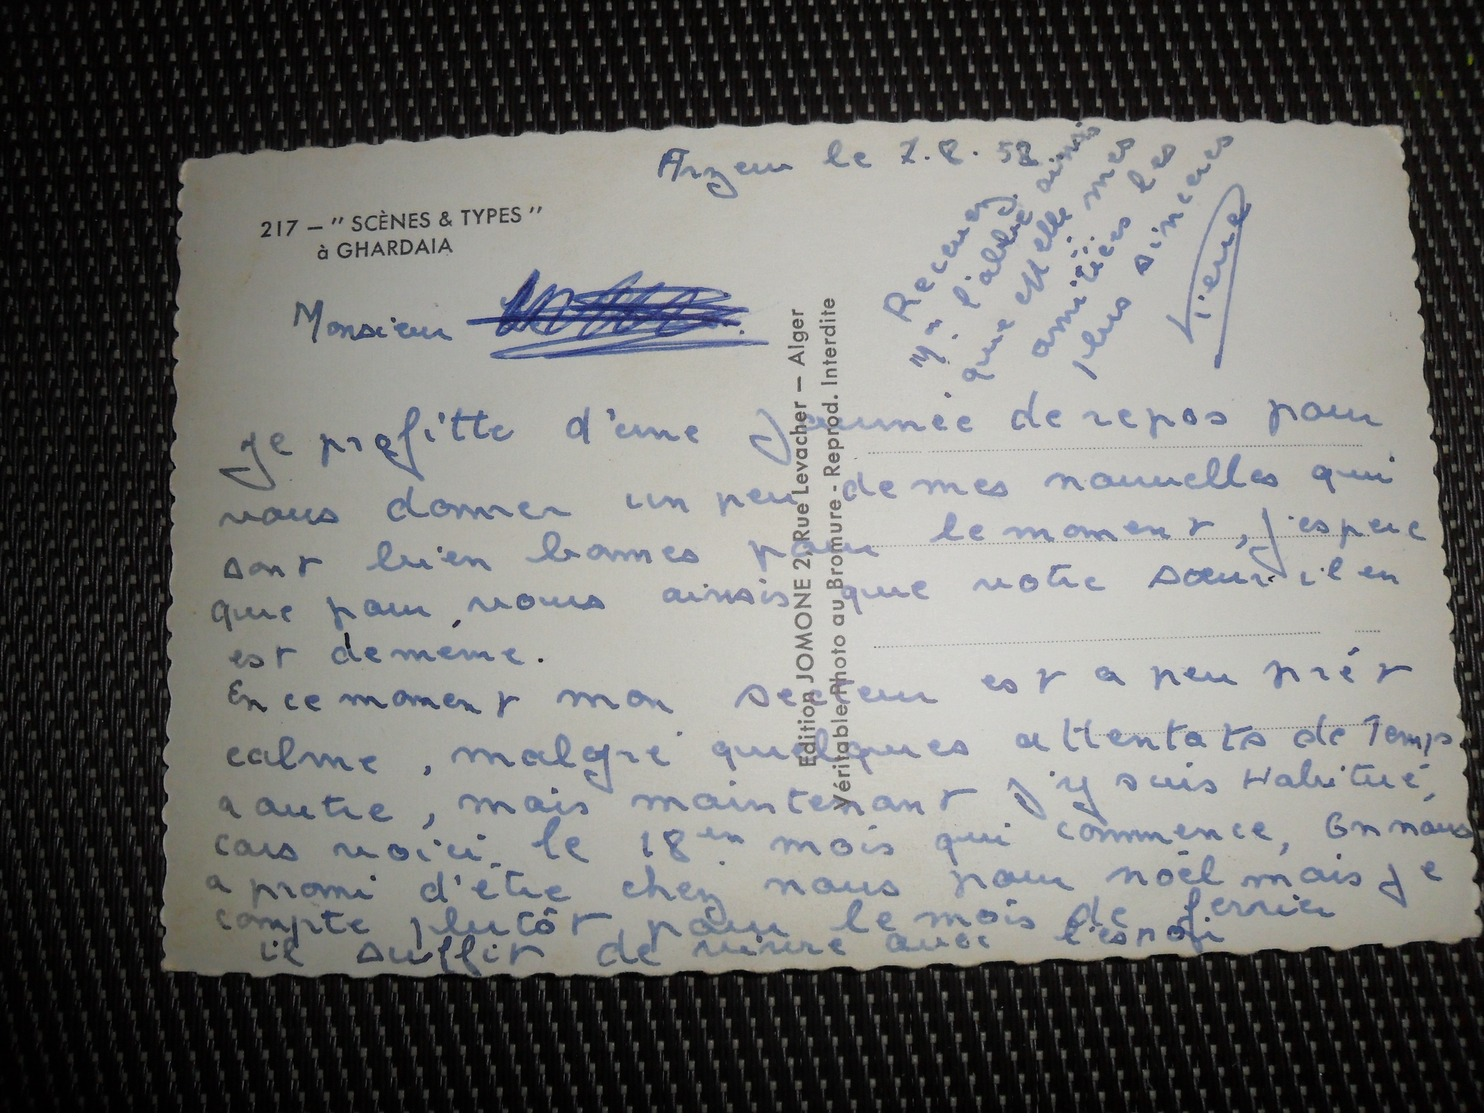 Arzew le 7.8.58
217 – " SCÈNES & TYPES "
à GHARDAIA
Monsieur
je profitte d'une journée de repos pour
vous donner un peu de mes nouvelles qui
sont bien bonnes pour le moment, j'espere
que pour vous ainsis que votre sœur il en
est de même.
En ce moment mon secteur est a peu prét
calme, malgré quelques attentats de Temps
a autre, mais maintenant j'y suis Habitué,
cars voici le 18em mois qui commence, On nous
a promi d'être chez nous pour noël mais je
compte plutôt pour le mois de fevrier
il suffit de vivre avec l'espoir
Recevez
Mr l'abbé ainsi
que elle mes
amitiées les
plus sincères
Pierre
Edition JOMONE 2, Rue Levacher – Alger
Véritable Photo au Bromure - Reprod. Interdite